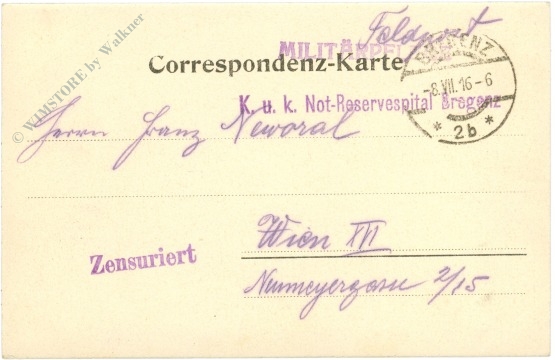 Feldpost
MILITÄRPFL
BREGENZ
-8.VII.16-6
* 2b *
Correspondenz-Karte
K. u. k. Not-Reservespital Bregenz
Herrn Franz Neworal
Wien XVI
Zensuriert
Neumeyergasse 2/15
© WIMSTORE by Walkner